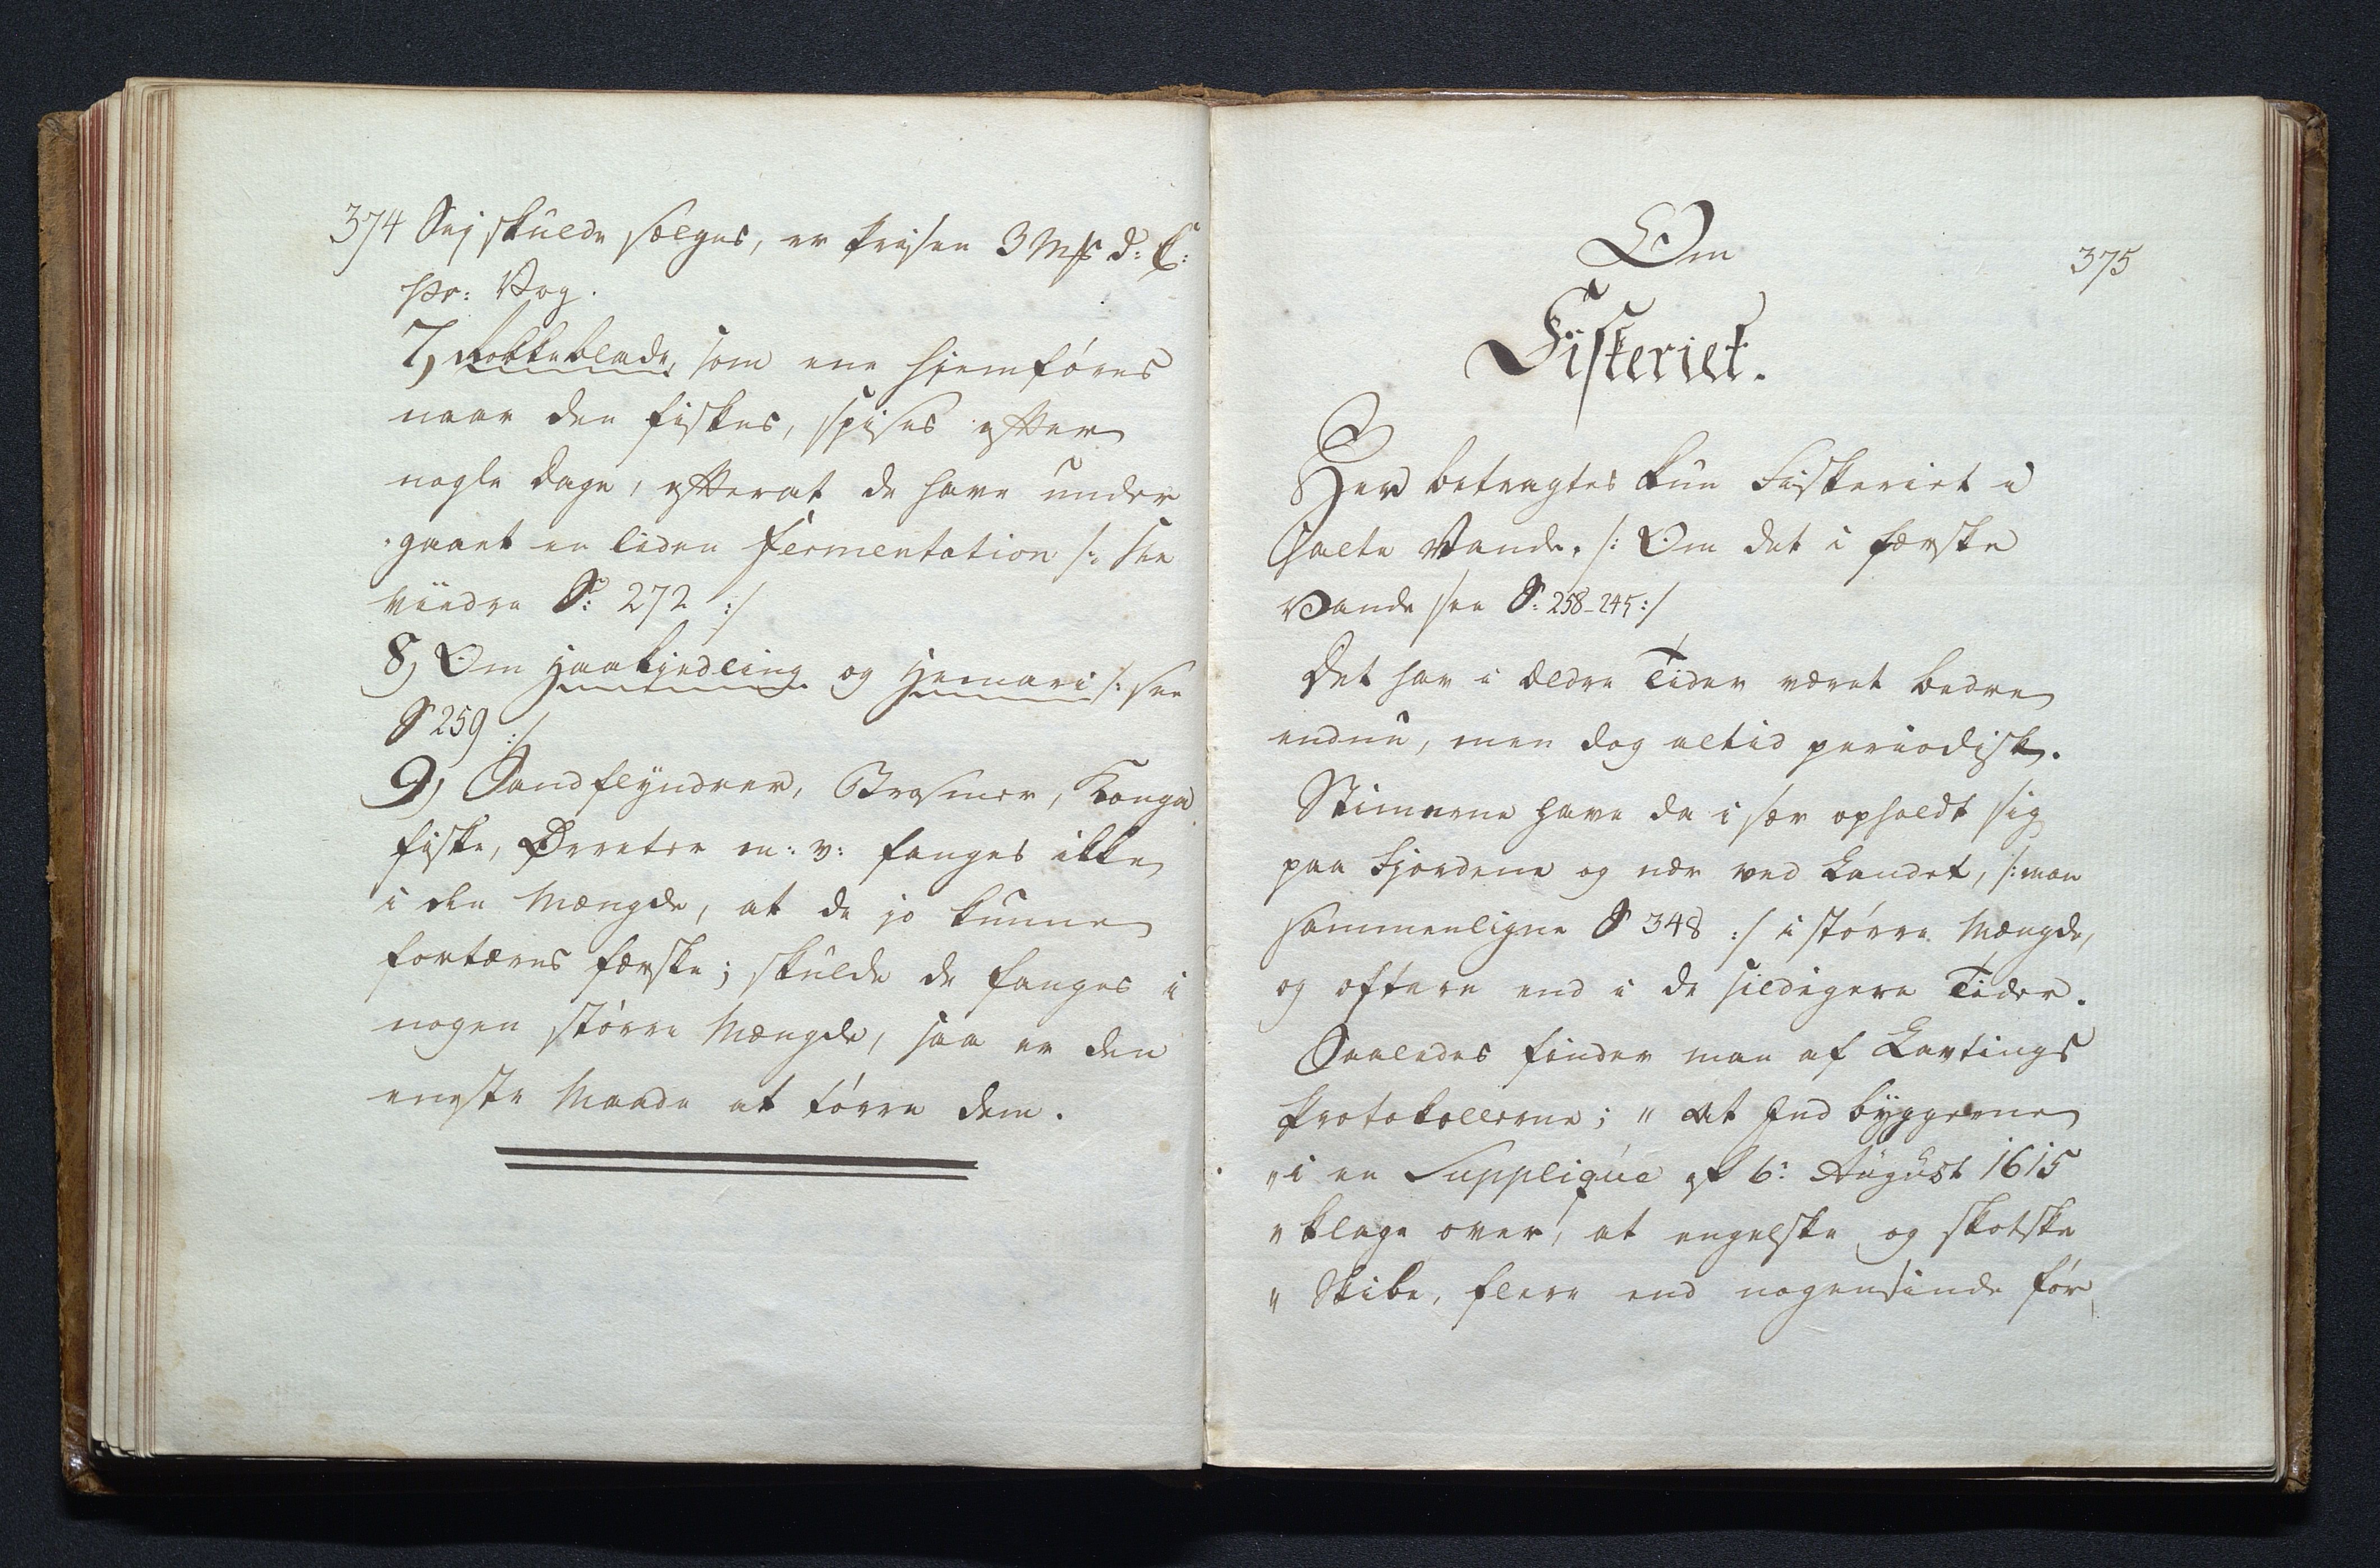 374 Sej skulde sælges, er Prisen 3 Mk d: C:
pr: Vog.
7) Rokkeblade, som ene hjemføres
naar den fiskes, spises efter
nogle Dage, efterat de have under
gaaet en liden Fermentation /: see
viidre S: 272 :/
8) Om Haakjedling og Hemari /: see
S 259 :/
9) Sandflyndrer, Brosmer, Konge
fiske, Ørreter m: v: fanges ikke
i den Mængde, at de jo kunne
fortæres færske; skulde de fanges i
nogen större Mængde, saa er den
eneste Maade at törre dem.
375
Om
Fiskeriet.
Her betragtes kun Fiskeriet i
salte Vande. /: Om det i færske
Vande see S: 258-245 :/
Det har i ældre Tider været bedre
endnu, men dog altid periodisk.
Stimerne have da i sær opholdt sig
paa Fjordene og nær ved Landet, /: man
sammenligne S 348 :/ i större Mængde,
og oftere end i de sildigere Tider.
Saaledes finder man af Lavtings
Protokollerne; „ at Indbyggerne
„ i en Supplique af 6: August 1615
„ klage over, at engelske og skotske
„ Skibe, flere end nogensinde för